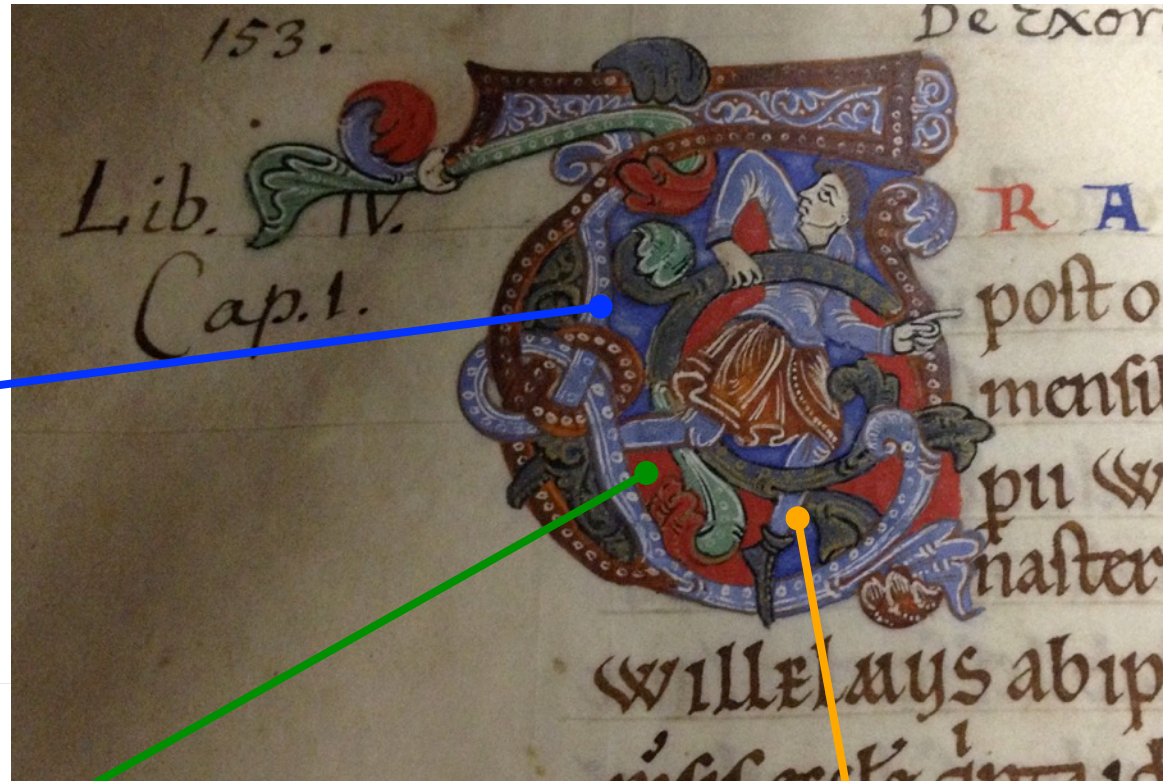 153.
De Exor
Lib. IV.
Cap. 1.
T R A
post o
mensib
pu W
naster
WILLELMUS ab ip